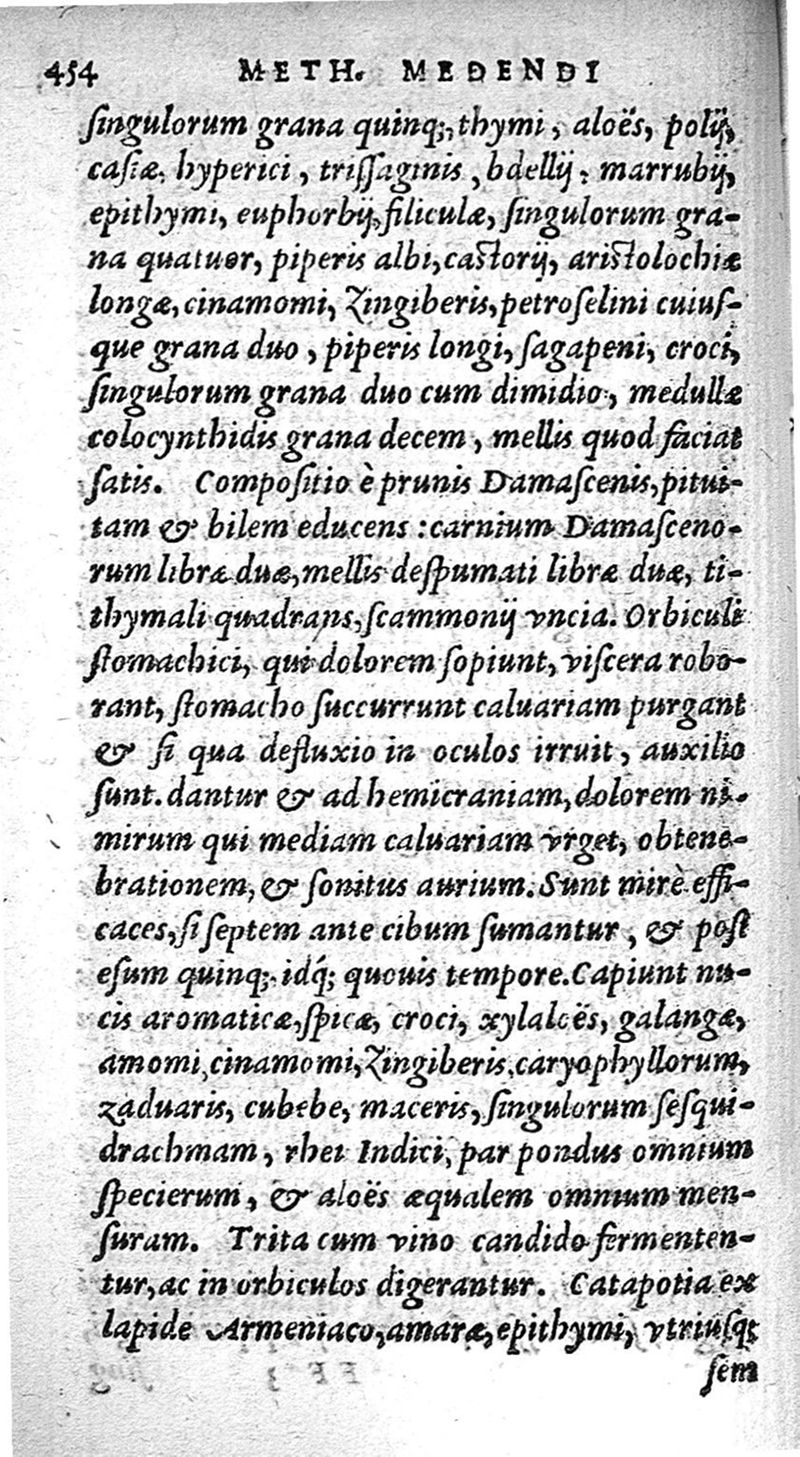 454 METH. MEDENDI
ſingulorum grana quinq;, thymi, aloës, polij,
caſiæ, hyperici, triſſaginis, bdellij, marrubij,
epithymi, euphorbij, filiculæ, ſingulorum gra-
na quatuor, piperis albi, caſtorij, ariſtolochiæ
longæ, cinamomi, Zingiberis, petroſelini cuiuſ-
que grana duo, piperis longi, ſagapeni, croci,
ſingulorum grana duo cum dimidio, medullæ
colocynthidis grana decem, mellis quod faciat
ſatis. Compoſitio è prunis Damaſcenis, pitui-
tam & bilem educens: carnium Damaſceno-
rum libræ duæ, mellis deſpumati libræ duæ, ti-
thymali quadrans, ſcammonij vncia. Orbiculi
ſtomachici, qui dolorem ſopiunt, viſcera robo-
rant, ſtomacho ſuccurrunt caluariam purgant
& ſi qua defluxio in oculos irruit, auxilio
ſunt. dantur & ad hemicraniam, dolorem ni-
mirum qui mediam caluariam vrget, obtene-
brationem, & ſonitus aurium. Sunt mirè effi-
caces, ſi ſeptem ante cibum ſumantur, & poſt
eſum quinq;. idq́; quouis tempore. Capiunt nu-
cis aromaticæ, ſpicæ, croci, xylaloës, galangæ,
amomi, cinamomi, Zingiberis, caryophyllorum,
zaduaris, cubebe, maceris, ſingulorum ſeſqui-
drachmam, rhei Indici, par pondus omnium
ſpecierum, & aloës æqualem omnium men-
ſuram. Trita cum vino candido fermenten-
tur, ac in orbiculos digerantur. Catapotia ex
lapide Armeniaco, amaræ, epithymi, vtriuſq;
ſem